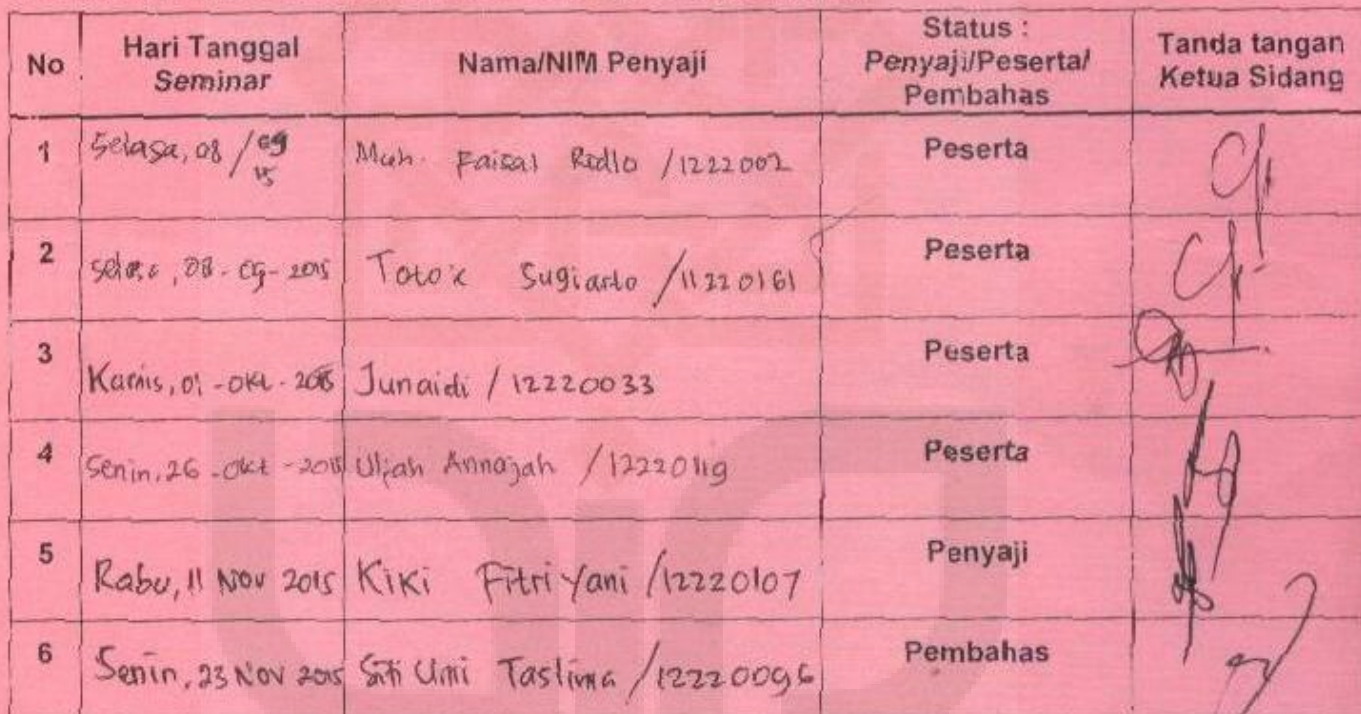 No Hari Tanggal Seminar Nama/NIM Penyaji Status : Penyaji/Peserta/ Pembahas Tanda tangan Ketua Sidang
1 Selasa, 08 / 09 15 Muh. Faisal Ridlo /1222002 Peserta
2 Selasa, 08 - 09 - 2015 Totok Sugiarto /11220161 Peserta
3 Kamis, 01 - Okt - 2015 Junaidi / 12220033 Peserta
4 Senin, 26 - Okt - 2015 Uljah Annajah /12220119 Peserta
5 Rabu, 11 Nov 2015 Kiki Fitri Yani /12220107 Penyaji
6 Senin, 23 Nov 2015 Siti Umi Taslima /12220096 Pembahas